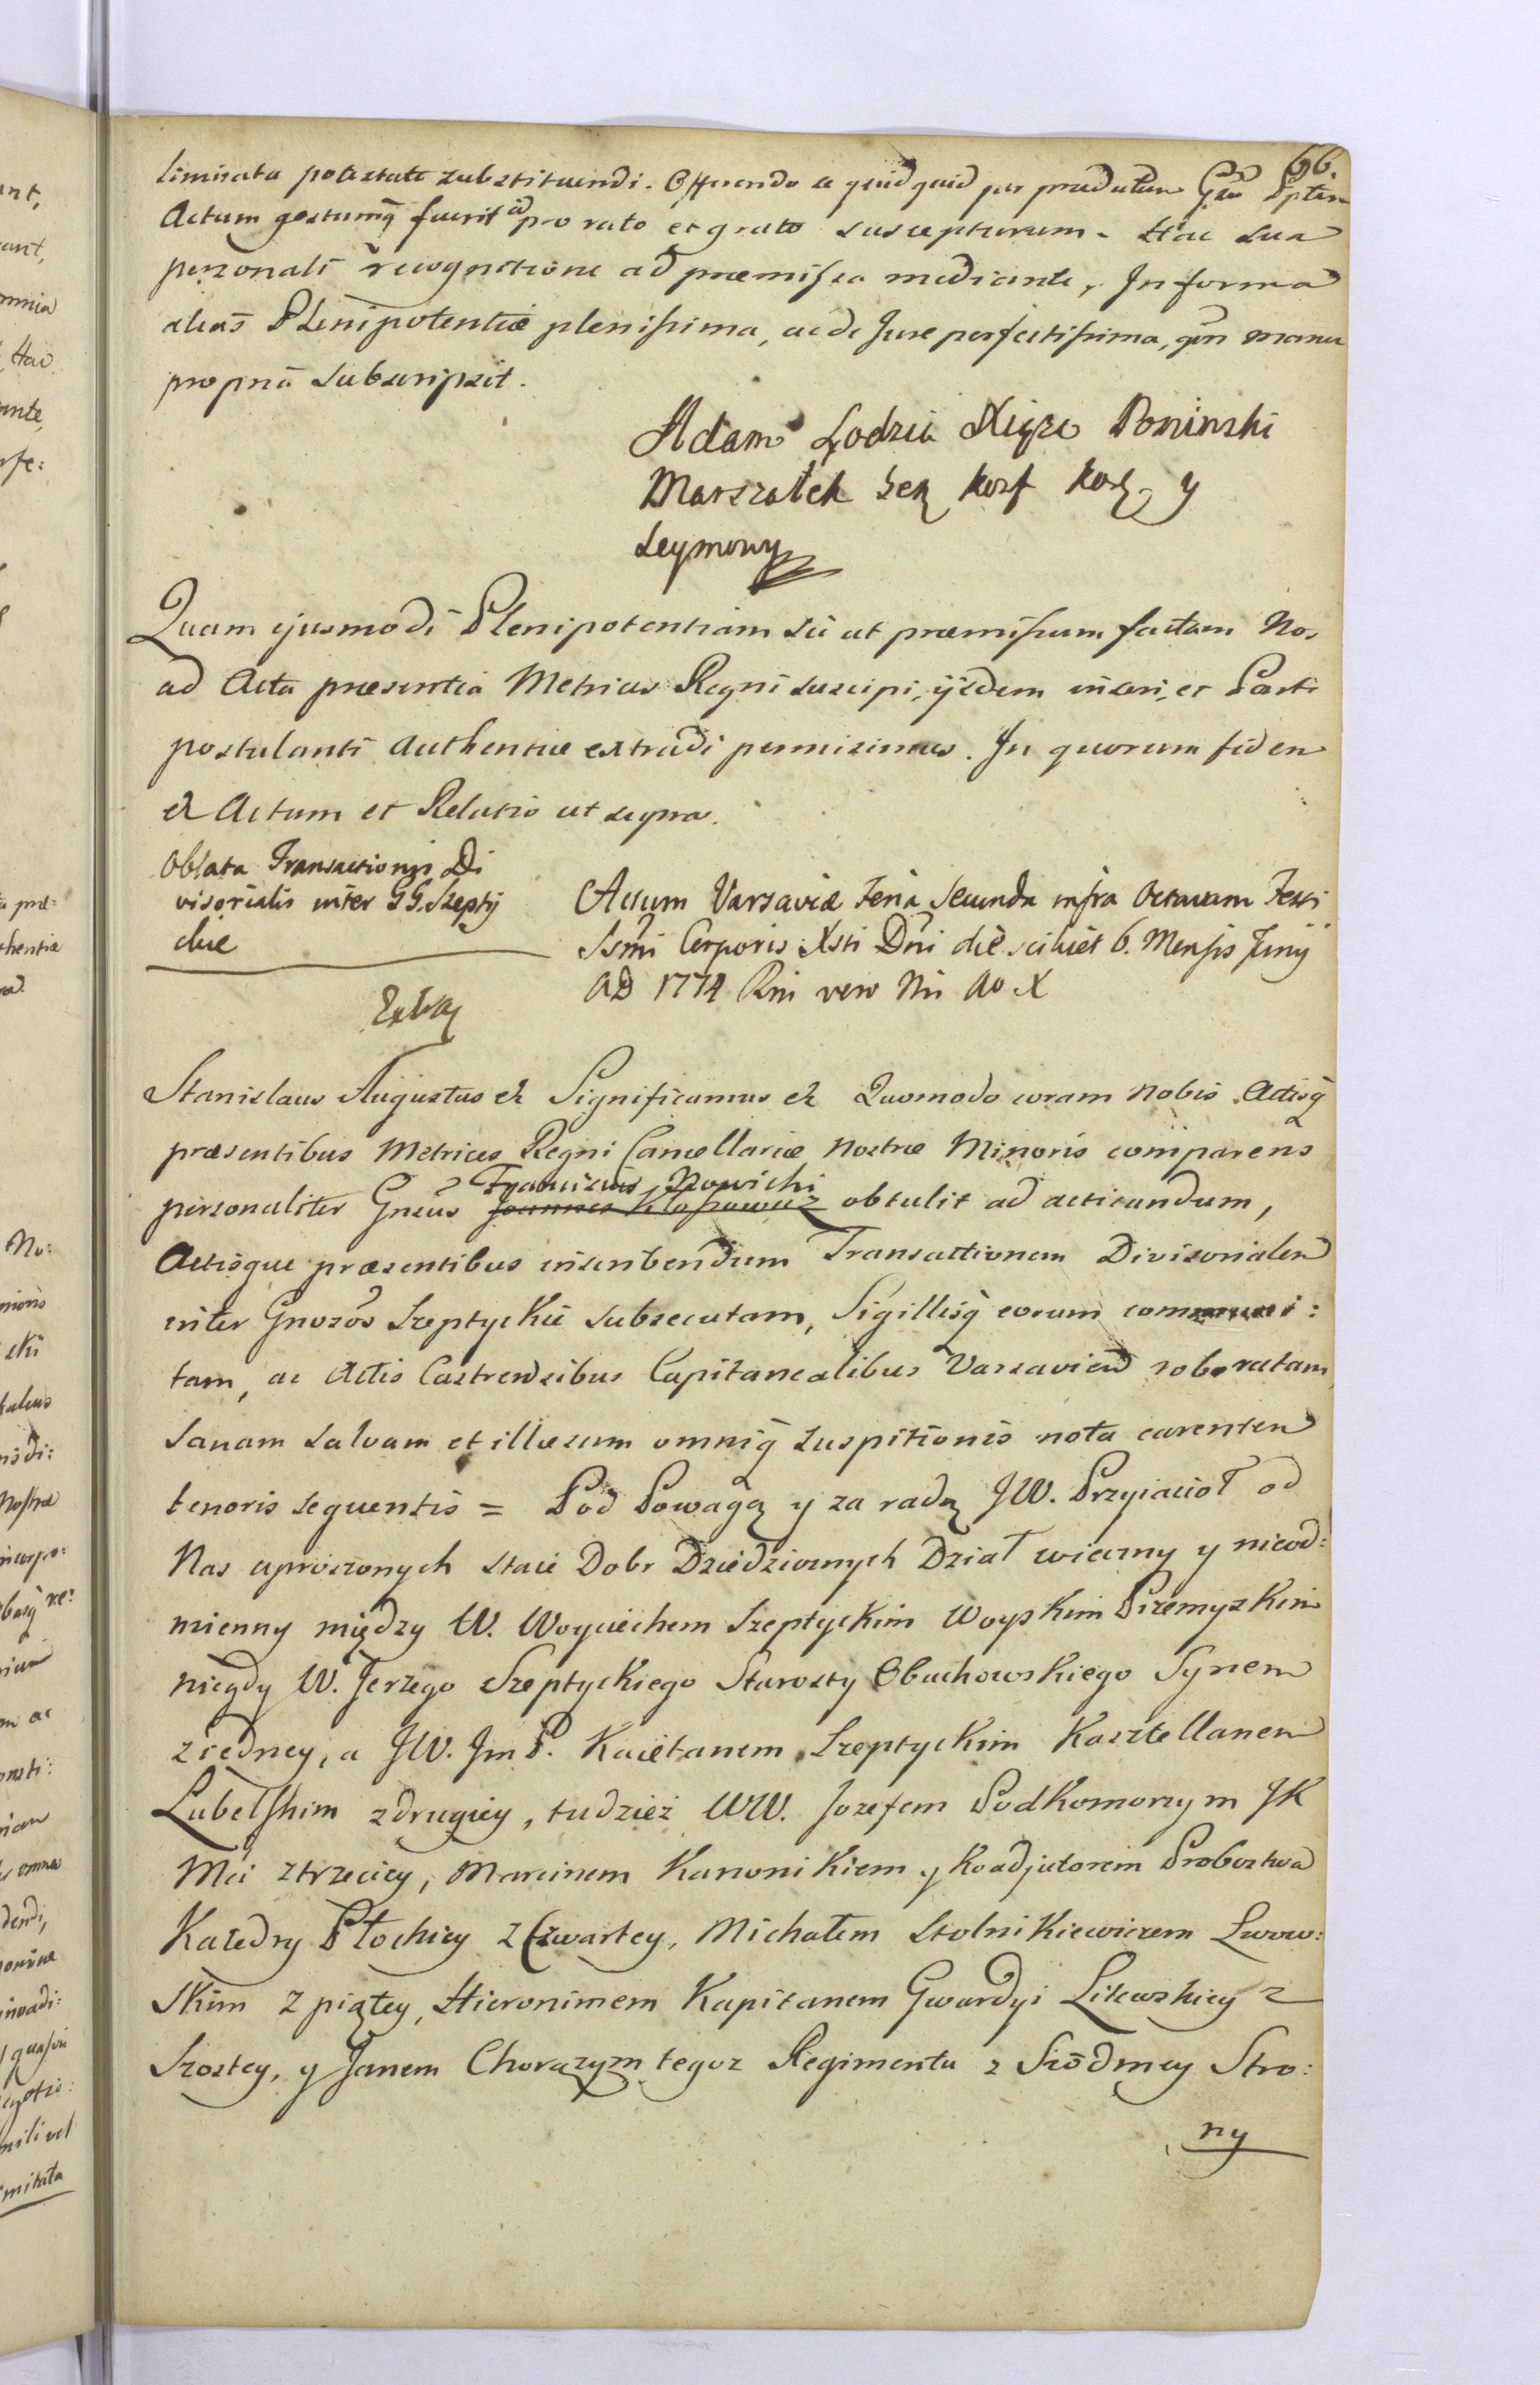 66.
limitata potestate substituendi. Offerendo se quidquid per praedictum Gsm Plptem
Actum gestumq̃ fuerit id pro rato et grato suscepturum. Hac sua
personali recognitione ad praemissa mediante, In forma
alias Plenipotentiæ plenissima, ac de Jure perfectissima, qm̃ manu
propria subscripsit.
Adam Łodzia Xiąże Poninski
Marszałek Sen Konf Kor, y
Seymowy
Quam ejusmodi Plenipotentiam sic ut præmissum factam Nos
ad Acta præsentia Metrices Regni suscipi, ijsdem inseri, et Parti
postulanti Authentice extradi permisimus. In quorum fidem
&c Actum et Relatio ut supra.
Oblata Transactionis Di
visorialis inter GG. Szepty
ckie
Extra
Actum Varsaviæ Feria Secunda infra Octavam Festi
Ssm̃i Corporis Xsti Dñi die scilicet 6. Mensis Junij
AD 1774 Rni vero Nri Ao X
Stanislaus Augustus &c Significamus &c Quomodo coram Nobis Actisq̃
præsentibus Metrices Regni Cancellariæ Nostræ Minoris comparens
personaliter Gnsus Franciscus Nowicki obtulit ad acticandum,
Actisque præsentibus inscribendum Transactionem Divisorialem
inter Gnosos Szeptyckie subsecutam, Sigillisq̃ eorum communi:
tam, ac Actis Castrensibus Capitanealibus Varsavien roboratam
Sanam salvam et illæsam omniq̃ suspitionis nota carentem
tenoris sequentis = Pod Powagą y za radą JW. Przyiacioł od
Nas uproszonych staie Dobr Dziedzicznych Dział wieczny y nieod:
mienny między W. Woyciechem Szeptyckim Woyskim Przemyskim
niegdy W. Jerzego Szeptyckiego Starosty Obuchowskiego Synem
z iedney, a JW. Jm P. Kaietanem Szeptyckim Kasztellanem
Lubelskim z drugiey, tudzież WW. Jozefem Podkomorzym JK
Mci z trzeciey, Marcinem Kanonikiem y Koadjutorem Probostwa
Katedry Płockiey z Czwartey, Michałem Stolnikiewiczem Lwow:
skim z piątey, Hieronimem Kapitanem Gwardyi Litewskiey z
Szostey, y Janem Chorązym tegoz Regimentu z Siódmey Stro:
ny